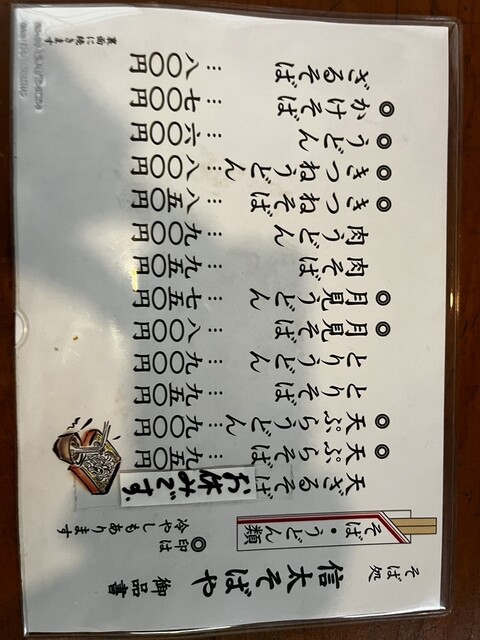 そば処
信太そばや 御品書
そば・うどん類
◎印は
冷やしもあります
天ざるそば お休みです。
◎天ぷらそば … 九五〇円
◎天ぷらうどん … 九〇〇円
とりそば … 九五〇円
とりうどん … 九〇〇円
◎月見そば … 八〇〇円
◎月見うどん … 七五〇円
肉そば … 九五〇円
肉うどん … 九〇〇円
◎きつねそば … 八五〇円
◎きつねうどん … 八〇〇円
◎うどん … 六〇〇円
◎かけそば … 七〇〇円
ざるそば … 八〇〇円
裏面に続きます